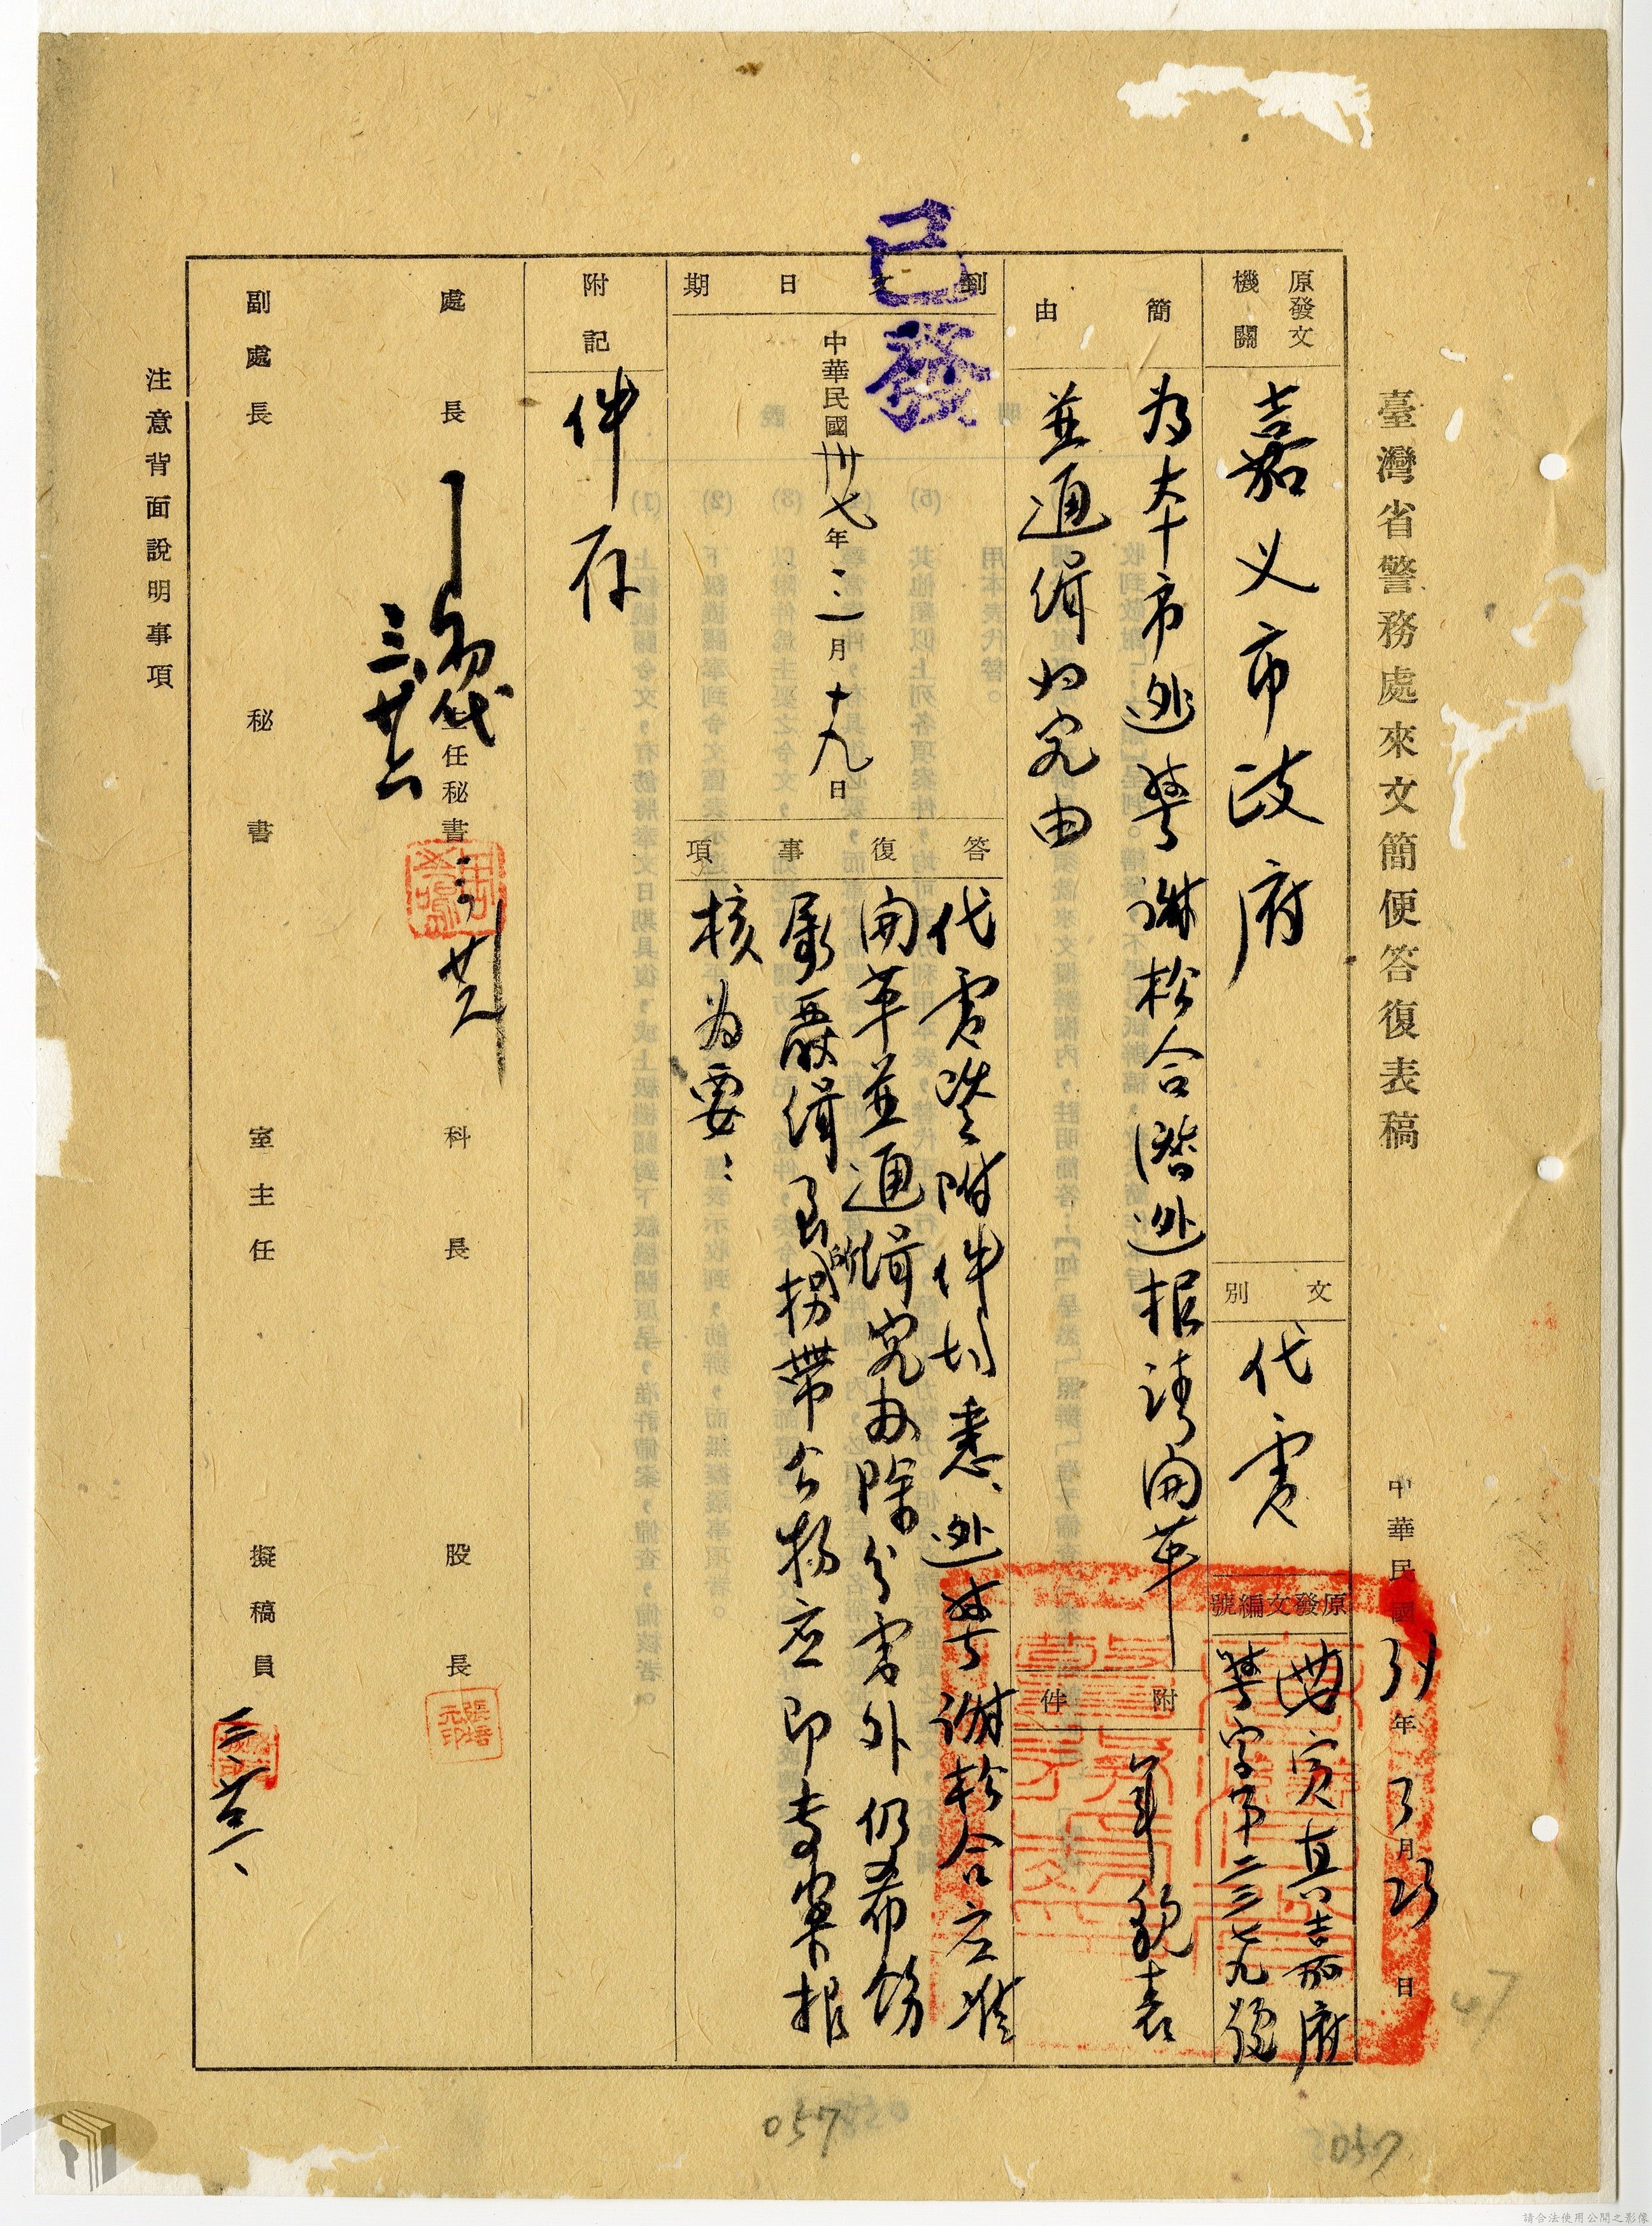 臺灣省警務處來文簡便答復表稿
中華民國37年3月25日
原發文機關
嘉义市政府
文別
代電
原發文編號
寅真嘉府
警字第二三七九號
簡由
為本市逃警謝松合潛逃報請開革
並通緝归究由
附件
年貌表
到文日期
中華民國卅七年三月十九日
答復事項
代電暨附件均悉、逃警謝松合应准
開革並通緝究办除分電外仍希飭
屬嚴緝所拐帶公物应即專案報
核為要：
附記
件存
處長
代
三、廿六
主任秘書
科長
股長
張培元印
副處長
秘書
室主任
擬稿員
注意背面說明事項
已發
47
057
057
請合法使用公開之影像